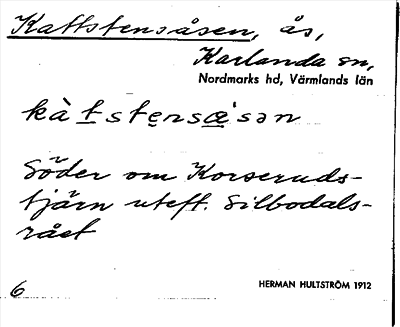 Kattstensåsen, ås,
Karlanda sn,
Nordmarks hd, Värmlands län
kàt̲ste̲nsæ̲̀sən
Söder om Korseruds-
tjärn uteft. Silbodals-
rået
6
HERMAN HULTSTRÖM 1912